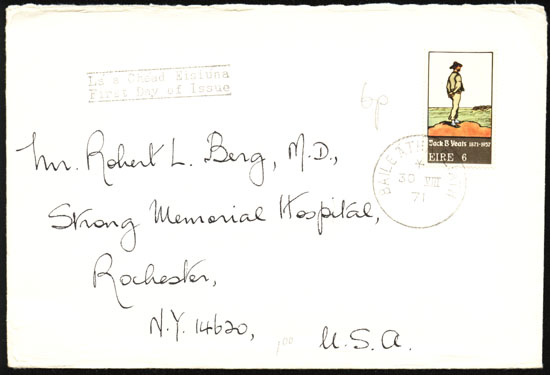 Lá a Chéad Eisiúna
First Day of Issue
6p
Jack B Yeats 1871-1957
EIRE 6
BAILE ÁTHA
30 VIII
71
Mr. Robert L. Berg, M.D.,
Strong Memorial Hospital,
Rochester,
N.Y. 14620,
U.S.A.